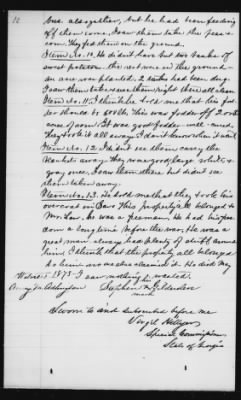 12
one altogether, but he had been feeding
off them some. I saw them take the peas &
corn. They fed them on the ground.
Item No. 10. He didn't have but one banks of
sweet potatoes the rest was in the ground
in one was planted. 2 banks had been dug.
I saw them take them right there all clean.
Item No. 11. I think he told me that his fod
der stowed to 5000 lbs. This was fodder off 2 cuts
acres of corn. It was good fodder well saved.
they took it all away. I don't know when it went
Item No. 12. I didn't see them carry the
blankets away they was good large white &
gray ones. I saw them there but didn't see
them taken away.
Item No. 13. He told me that they took his
overcoat This property all belonged to
Mr. Law. he was a freeman. He had his free
dom a long time before the war. He was a
great man always had plenty of stuff around
him. I think that the property all belonged
to him no one else claimed it. He died May
1873 I saw nothing wasted.
his
Stephen X
mark
Sworn to and subscribed before me
Virgil Hillyer
Special Commissioner
State of Georgia